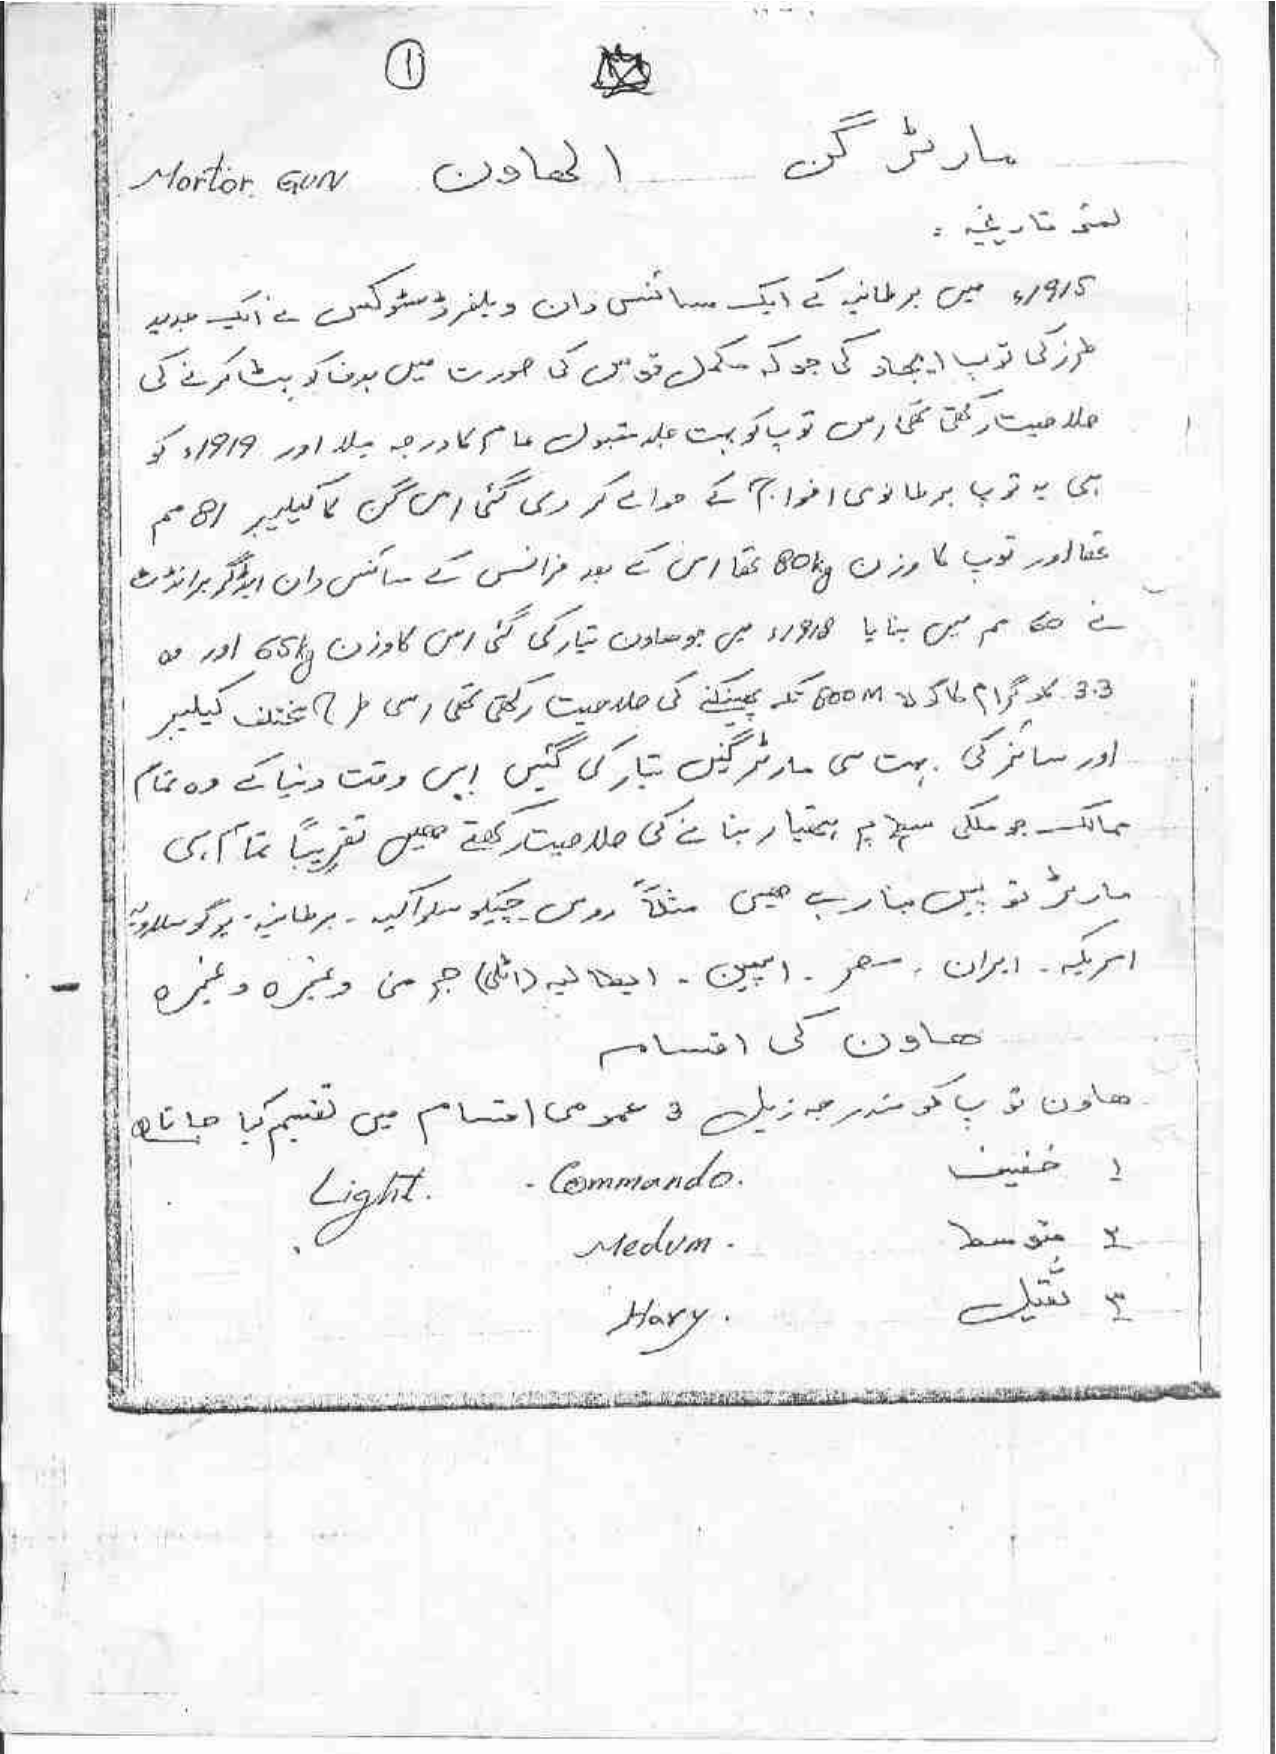 ①
مارٹر گن الھاون Mortor. GUN
لمحہ تاریخیہ :
1915ء میں برطانیہ کے ایک سائنس دان ویلفرڈ سٹوکس نے ایک جدید
طرز کی توپ ایجاد کی جو کہ مکمل قوس کی صورت میں ہدف کو ہٹ کرنے کی
صلاحیت رکھتی تھی اس توپ کو بہت جلد مقبول عام کا درجہ ملا اور 1919ء کو
ہی یہ توپ برطانوی افواج کے حوالے کر دی گئی اس گن کا کیلیبر 81 مم
تھا اور توپ کا وزن 80kg تھا اس کے بعد فرانس کے سائنس دان ایڈگر برانڈٹ
نے 60 مم میں بنایا 1918ء میں جو ھاون تیار کی گئی اس کا وزن 65kg اور وہ
3.3 کلو گرام کا گولا 600M تک پھینکنے کی صلاحیت رکھتی تھی اسی طرح مختلف کیلیبر
اور سائز کی بہت سی مارٹر گنیں تیار کی گئیں اس وقت دنیا کے وہ تمام
ممالک جو ملکی سطح پر ہتھیار بنانے کی صلاحیت رکھتے ھیں تقریباً تمام ہی
مارٹر توپیں بنا رہے ھیں مثلاً روس چیکو سلواکیہ - برطانیہ - یوگوسلاویہ
امریکہ - ایران - مصر - اسپین - ایطالیہ (اٹلی) جرمنی وغیرہ وغیرہ
ھاون کی اقسام
ھاون توپ کو مندرجہ زیل 3 عمومی اقسام میں تقسیم کیا جاتا ھے
۱ خفیف - Commando. Light.
۲ متوسط Medum.
۳ ثقیل Havy.